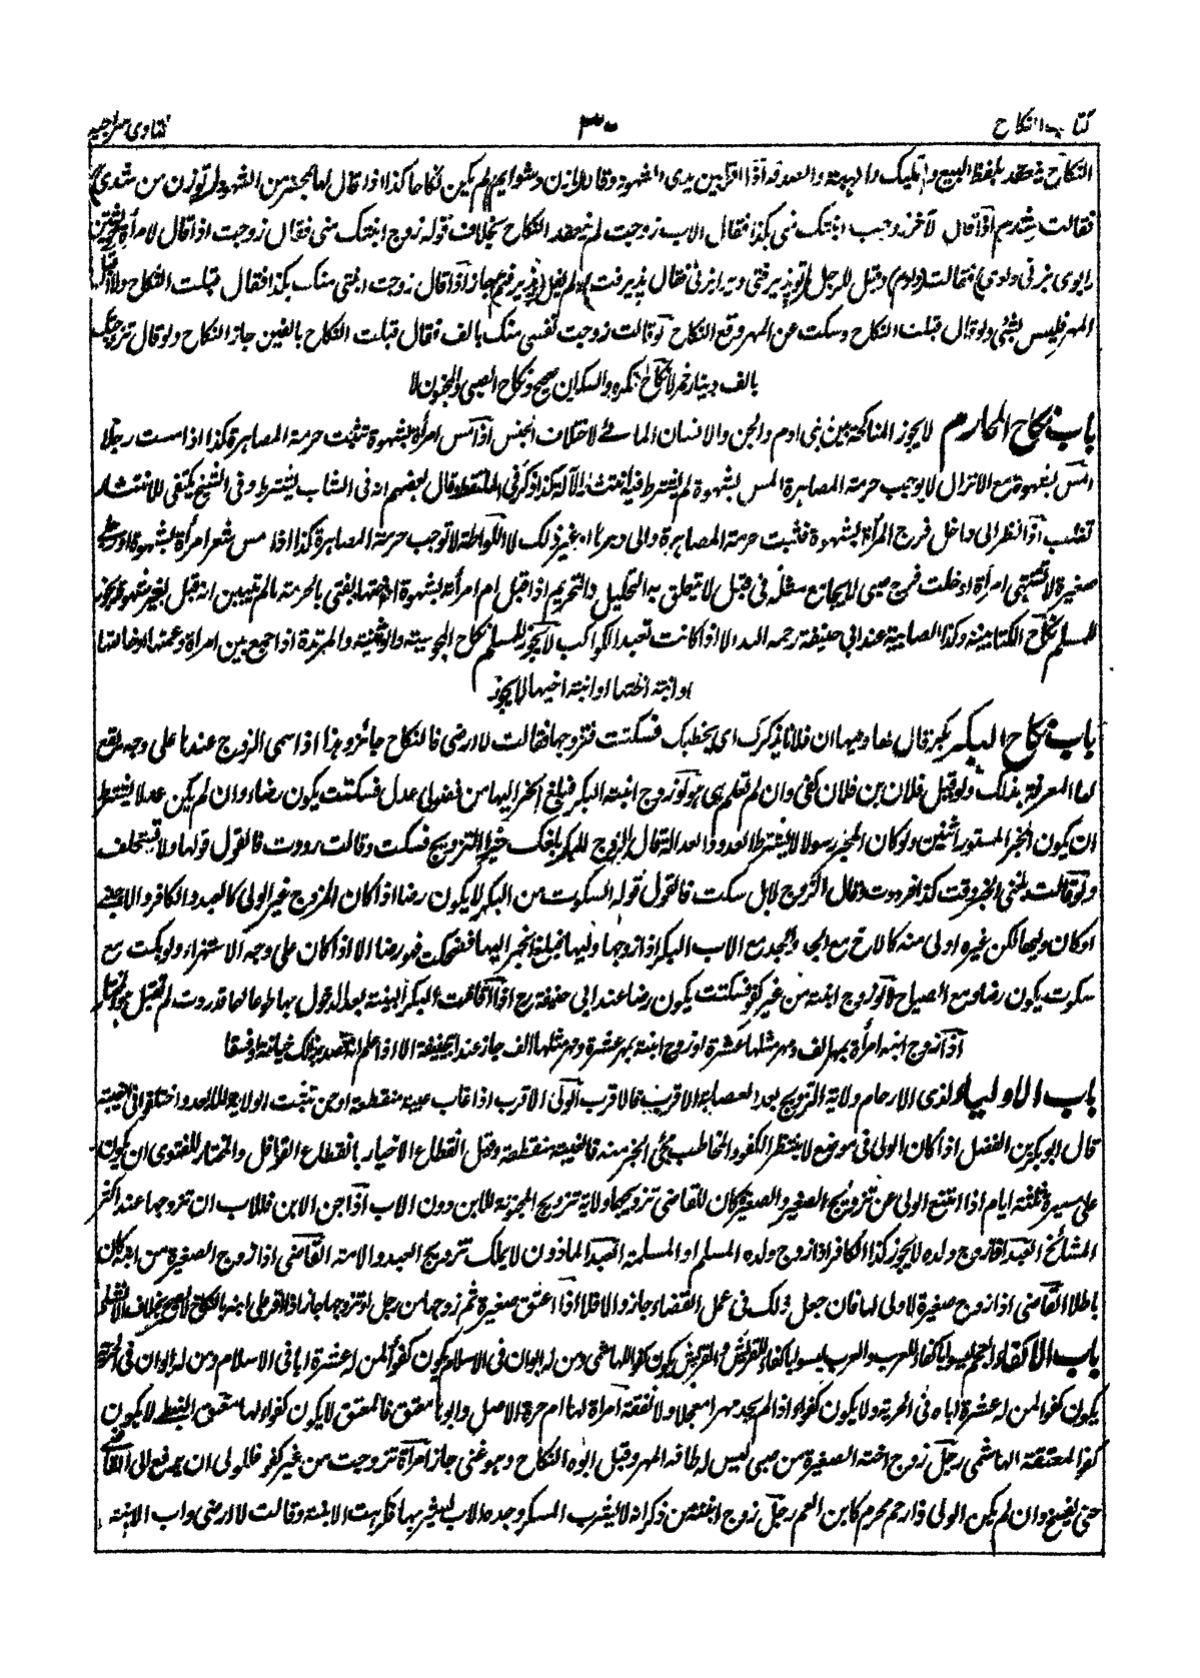 كتاب النكاح
٣٠
فتاوى سراجيه
النكاح ينعقد بلفظ البيع والتمليك والهبة والصدقة اذا اقرا بين يدى الشهود وقالا ازن وشوايم لم يكن نكاحا كذا اذا قال لها بمحضر من الشهود تو زن من شدى
فقالت شدم اذا قال لآخر زوجت ابنتك منى بكذا فقال الاب زوجت لم ينعقد النكاح بخلاف قوله زوج ابنتك منى فقال زوجت اذا قال لامرأة خويشتن
فقال پذيرفت جاز اذا قال زوجت ابنتى منك بكذا فقال قبلت النكاح ولا اقبل
المهر فليس بشئ ولو قال قبلت النكاح وسكت عن المهر وقع النكاح لو قالت زوجت نفسى منك بالف فقال قبلت النكاح بالفين جاز النكاح ولو قال تزوجتك
بالف دينار نكاح المكره والسكران صحيح ونكاح الصبى والمجنون لا
باب نكاح المحارم لا يجوز المناكحة بين بنى ادم والجن والانسان المائى لاختلاف الجنس اذا مس امرأة بشهوة تثبت حرمة المصاهرة كذا اذا مست رجلا
المس بشهوة مع الانزال لا يوجب حرمة المصاهرة المس بشهوة لم يشترط فيه انبعاث الآلة كذا ذكر فى الملتقط وقال بعضهم انه فى الشاب يشترط وفى الشيخ يكتفى للانتشار
اذا نظر الى داخل فرج المرأة بشهوة تثبت حرمة المصاهرة والى دبرها او بغير ذلك لا اللواطة لا توجب حرمة المصاهرة كذا اذا مس شعر امرأة بشهوة او وطى
صغيرة لا تشتهى امرأة ادخلت فرج صبى لا يجامع مثله فى قبل لا يتعلق به التحليل والتحريم اذا قبل ام امرأته بشهوة يفتى بالحرمة مالم يتبين انه قبل بغير شهوة يجوز
للمسلم نكاح الكتابية وكذا الصابية عند ابى حنيفة رحمه الله الا اذا كانت تعبد الكواكب لا يجوز للمسلم نكاح المجوسية والوثنية والمرتدة اذا جمع بين امرأة وعمتها او خالتها
او ابنة اختها او ابنة اخيها لا يجوز
باب نكاح البكر بكر قال لها وليها ان فلانا يذكرك اى يخطبك فسكتت فتزوجها فقالت لا ارضى فالنكاح جائز وهذا اذا سمى الزوج عندها على وجه يقع
لها المعرفة بذلك ولو قيل فلان بن فلان كفى وان لم تعلم من هو لو زوج ابنته البكر فبلغ الخبر اليها من فضولى عدل فسكتت يكون رضاء وان لم يكن عدلا يشترط
ان يكون المخبر المستور اثنين ولو كان المخبر رسولا لا يشترط العدد والعدالة قال الزوج للبكر بلغك خبر التزويج فسكت وقالت رددت فالقول قولها ولا تستحلف
ولو قالت بلغنى الخبر وقت كذا فرددت وقال الزوج لا بل سكت فالقول قوله السكوت من البكر لا يكون رضا اذا كان المزوج غير الولى كالعبد والكافر والاجنبى
او كان وليها لكن غيره اولى منه كالاخ مع الجد والجد مع الاب البكر اذا زوجها وليها فبلغ الخبر اليها فضحكت فهو رضا الا اذا كان على وجه الاستهزاء ولو بكت مع
سكوت يكون رضا ومع الصياح لا لو زوج ابنته من غير كفو فسكتت يكون رضا عند ابى حنيفة رح اذا اقامت البكر البينة بعد الدخول بها طوعا انها قد ردت لم تقبل
اذا زوج ابنه امرأة بمهر الف ومهر مثلها عشرة او زوج ابنته بمهر عشرة ومهر مثلها الف جاز عند ابى حنيفة الا اذا علم انه قصد بذلك خيانة او فسقا
باب الاولياء لذى الارحام ولاية التزويج بعد العصابة الاقرب فالاقرب الولى الاقرب اذا غاب غيبة منقطعة او جن تثبت الولاية للابعد واختلفوا فى الغيبة
قال ابو بكر بن الفضل اذا كان الولى فى موضع لا ينتظر الكفو والخاطب مجئ الخبر منه فالغيبة منقطعة وقيل انقطاع الاخبار بانقطاع القوافل والمختار للفتوى ان يكون
على مسيرة ثلثة ايام اذا امتنع الولى عن تزويج الصغير والصغيرة كان للقاضى تزويجها ولاية تزويج المجنونة للابن دون الاب اذا جن الابن فللاب ان تزوجها عند اكثر
المشائخ العبد اذا زوج ولده لا يجوز كذا الكافر اذا زوج ولده المسلم او المسلمة العبد الماذون لا يملك تزويج العبد والامة القاضى اذا زوج الصغيرة من ابنه كان
باطلا القاضى اذا زوج صغيرة لا ولى لها فان جعل ذلك فى عمل القضاء جاز والا فلا اذا اعتق صغيرة ثم زوجها من رجل او تزوجها جاز
باب الاكفاء العجم ليسوا باكفاء للعرب والعرب ليسوا باكفاء لقريش والقريش يكون كفوا للهاشمى ومن له ابوان فى الاسلام يكون كفوا لمن له عشرة اباء فى الاسلام ومن له ابوان فى الحرية
يكون كفوا لمن له عشرة اباء فى الحرية ولا يكون كفوا اذا لم يجد مهرا معجلا ولا نفقة امرأة لها ام حرة الاصل وابوها معتق فالمعتق لا يكون كفوا لها معتق النبطى لا يكون
كفوا لمعتقة الهاشمى رجل زوج اخته الصغيرة من صبى ليس له طاقة المهر وقبل ابوه النكاح وهو غنى جاز امرأة تزوجت من غير كفو فللولى ان يرفع الى القاضى
حتى يفسخ وان لم يكن الولى ذا رحم محرم كابن العم رجل زوج ابنته من ذكر انه لا يشرب المسكر وجده الاب يشربها فكبرت الابنة وقالت لا ارضى واب الابنة